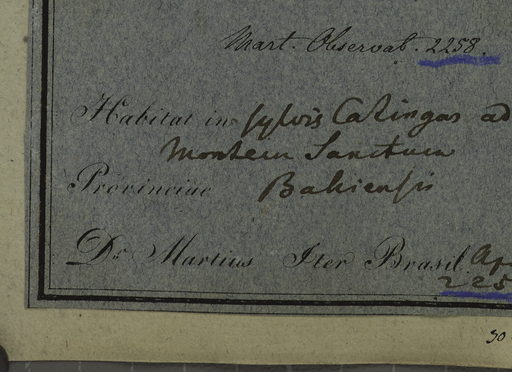 Mart. Observat. 2258.
Habitat in sylvis Catingas ad
Montem Sanctum
Provinciae Bahiensis
Dr. Martius Iter Brasil. Ap
225
30